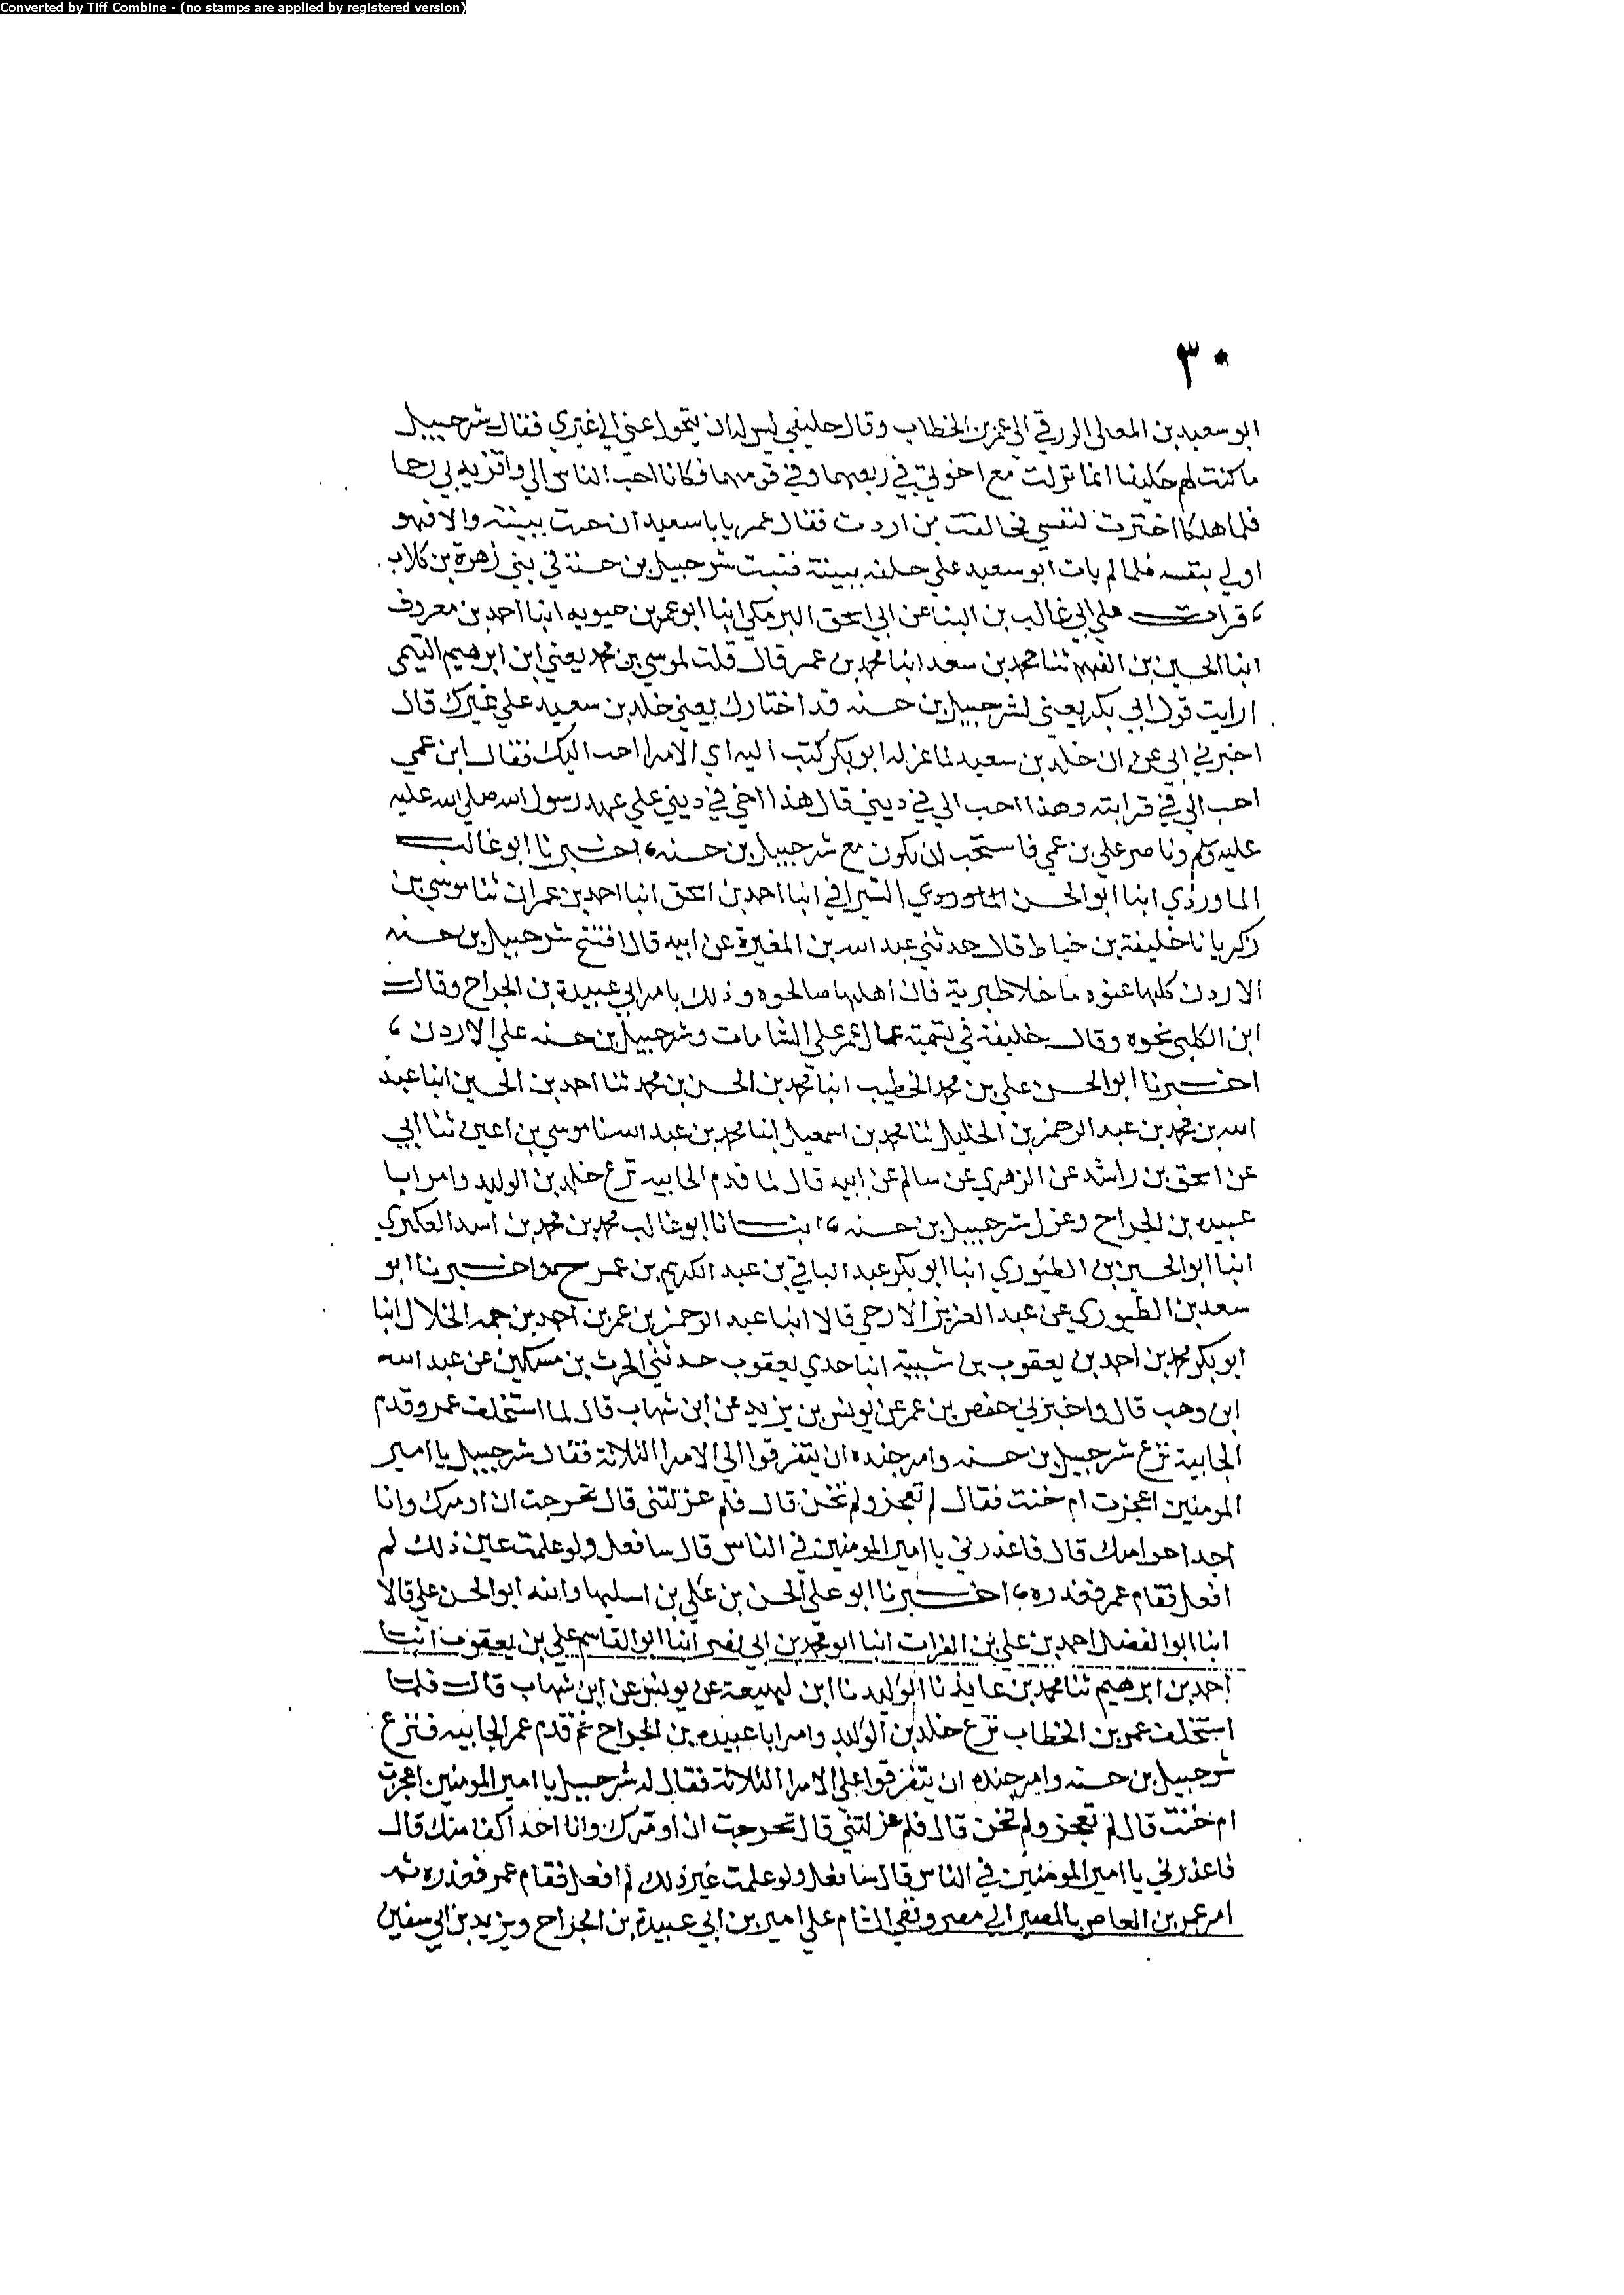 Converted by Tiff Combine - (no stamps are applied by registered version)
٣٠
ابو سعيد بن المعلى الزرقي الى عمر بن الخطاب وقال حليفي ليس له ان يتحول عني الي غيري فقال شرحبيل
ما كنت لهم حليفا انما نزلت مع اخوتي في ربعهما وفي قومهما فكانا احب الناس الي واقربه بي رحما
فلما هلكا اخترت لنفسي فحالفت من اردت فقال عمر يابا سعيد ان جيت ببينة والا فهو
اولي بنفسه فلما لم يات ابو سعيد علي حلفه ببينة فثبت شرحبيل بن حسنة في بني زهرة بن كلاب
قرات علي ابي غالب بن البنا عن ابي اسحق البرمكي ابنا ابو عمر بن حيويه انبا احمد بن معروف
انبا الحسين بن الفهم ثنا محمد بن سعد ابنا محمد بن عمر قال قلت لموسي بن محمد يعني ابن ابرهيم التيمى
ارايت قول ابي بكر يعني لشرحبيل بن حسنه قد اختارك يعني خلد بن سعيد علي غيرك قال
اخبرني ابي عن ان خلد بن سعيد لما عزله ابو بكر كتب اليه اي الامرا احب اليك فقال ابن عمي
احب الي في قرابته وهذا احب الي في ديني قال هذا اخي في ديني علي عهد رسول الله صلي الله عليه
عليه وسلم وناصر علي بن عمي فاستحب ان يكون مع شرحبيل بن حسنه اخبرنا ابو غالب
الماوردي ابنا ابو الحسن السيرافي انبا احمد بن اسحق انبا احمد بن عمران ثنا موسي بن
زكريا نا خليفة بن خياط قال حدثني عبد الله بن المغيرة عن ابيه قال افتتح شرحبيل بن حسنه
الاردن كلها عنوه ما خلا طبرية فان اهلها صالحوه وذلك بامر ابي عبيدة بن الجراح وقال
ابن الكلبى نحوه وقال خليفة في تسمية عمال عمر علي الشامات وشرحبيل بن حسنه علي الاردن
اخبرنا ابو الحسن علي بن محمد الخطيب انبا محمد بن الحسن بن محمد ثنا احمد بن الحسين انبا عبد
الله بن محمد بن عبد الرحمن بن الخليل ثنا محمد بن اسمعيل انبا محمد بن عبد الله نا موسي بن اعين ثنا ابي
عن اسحق بن راشد عن الزهري عن سالم عن ابيه قال لما قدم الجابيه نزع خلد بن الوليد وامر ابا
عبيده بن الجراح وعزل شرحبيل بن حسنه انبانا ابو غالب محمد بن محمد بن اسد العكبري
انبا ابو الحسين بن الطيوري انبا ابو بكر عبد الباقي بن عبد الكريم بن عمر ح واخبرنا ابو
سعد بن الطيوري عن عبد العزيز الازجي قالا انبا عبد الرحمن بن عمر بن احمد بن حمه الخلال انبا
ابو بكر محمد بن احمد بن يعقوب بن شيبة انبا جدي يعقوب حدثني الحرث بن مسكين عن عبد الله
ابن وهب قال واخبرني حفص بن عمر عن يونس بن يزيد عن ابن شهاب قال لما استخلف عمر وقدم
الجابية نزع شرحبيل بن حسنه وامر جنده ان يتفرقوا الي الامرا الثلاثة فقال شرحبيل يا امير
المومنين اعجزت ام خنت فقال لم تعجز ولم تخن قال فلم عزلتنى قال تحرجت ان اومرك وانا
اجد اجرا منك قال فاعذرني يا امير المومنين في الناس قال سافعل ولو علمت غير ذلك لم
افعل فقام عمر فعذره اخبرنا ابو علي الحسن بن علي بن اسليها وابنه ابو الحسن علي قالا
انبا ابو الفضل احمد بن علي بن الفرات انبا ابو محمد بن ابي نصر انبا ابو القاسم علي بن يعقوب انبا
احمد بن ابرهيم ثنا محمد بن عايذ نا الوليد نا ابن لهيعة عن يونس عن ابن شهاب قال فلما
استخلف عمر بن الخطاب نزع خلد بن الوليد وامر ابا عبيده بن الجراح ثم قدم عمر الجابيه فنزع
شرحبيل بن حسنه وامر جنده ان يتفرقوا علي الامرا الثلاثة فقال له شرحبيل يا امير المومنين اعجزت
ام خنت قال لم تعجز ولم تخن قال فلم عزلتني قال تحرجت ان اومرك وانا اجد اكفا منك قال
فاعذرني يا امير المومنين في الناس قال سافعل ولو علمت غير ذلك لم افعل فقام عمر فعذره ثم
امر عمر بن العاص بالمصير الي مصر وبقي الشام علي اميرين ابي عبيدة بن الجراح ويزيد بن ابي سفين